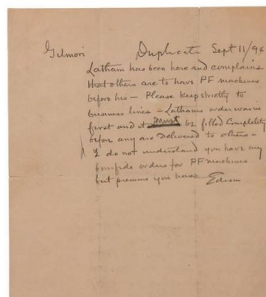 Gilmore Duplicate Sept 11/94
Latham has been here and complains
that others are to have PF machines
before his – Please keep strictly to
business lines – Lathams order was
first and it must be filled Completely
before any are delivered to others –
I do not understand you have any
orders for PF machines
but presume you have Edison